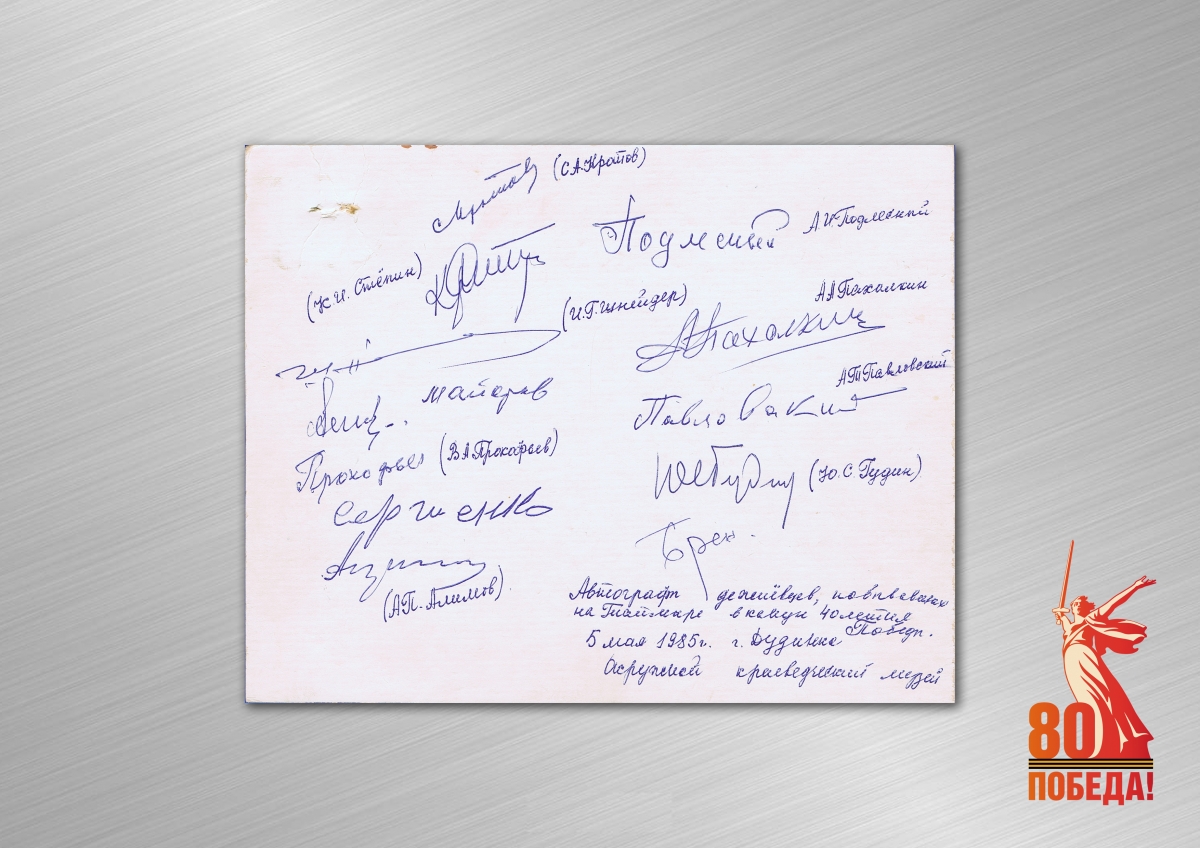 (С.А.Кротов)
Подлесный
А.И.Подлесный
(К.И. Стёпин)
(И.Г.Шнейдер)
А.А.Пахалкин
А.Пахалкин
майоров
А.Т.Павловский
Прокофьев (В.А.Прокофьев)
Ю.С.Гудин (Ю.С.Гудин)
Сергиенко
(А.П.Алимов)
Автограф дежнёвцев, побывавших
на Таймыре в канун 40летия
Победы.
5 мая 1985г. г. Дудинка
Окружной краеведческий музей
80
ПОБЕДА!